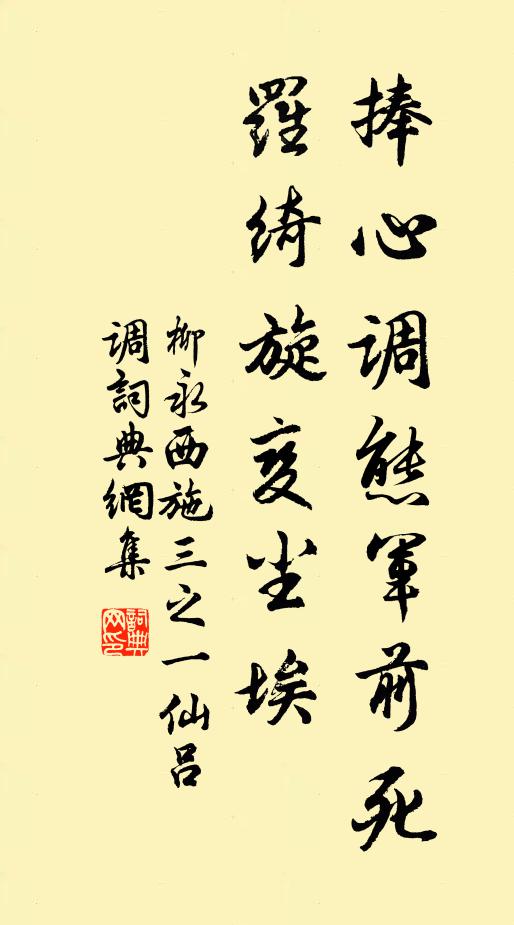 捧心调態军前死
羅绮旋变尘埃
柳永西施三之一仙吕
调詞典網集
詞典网印